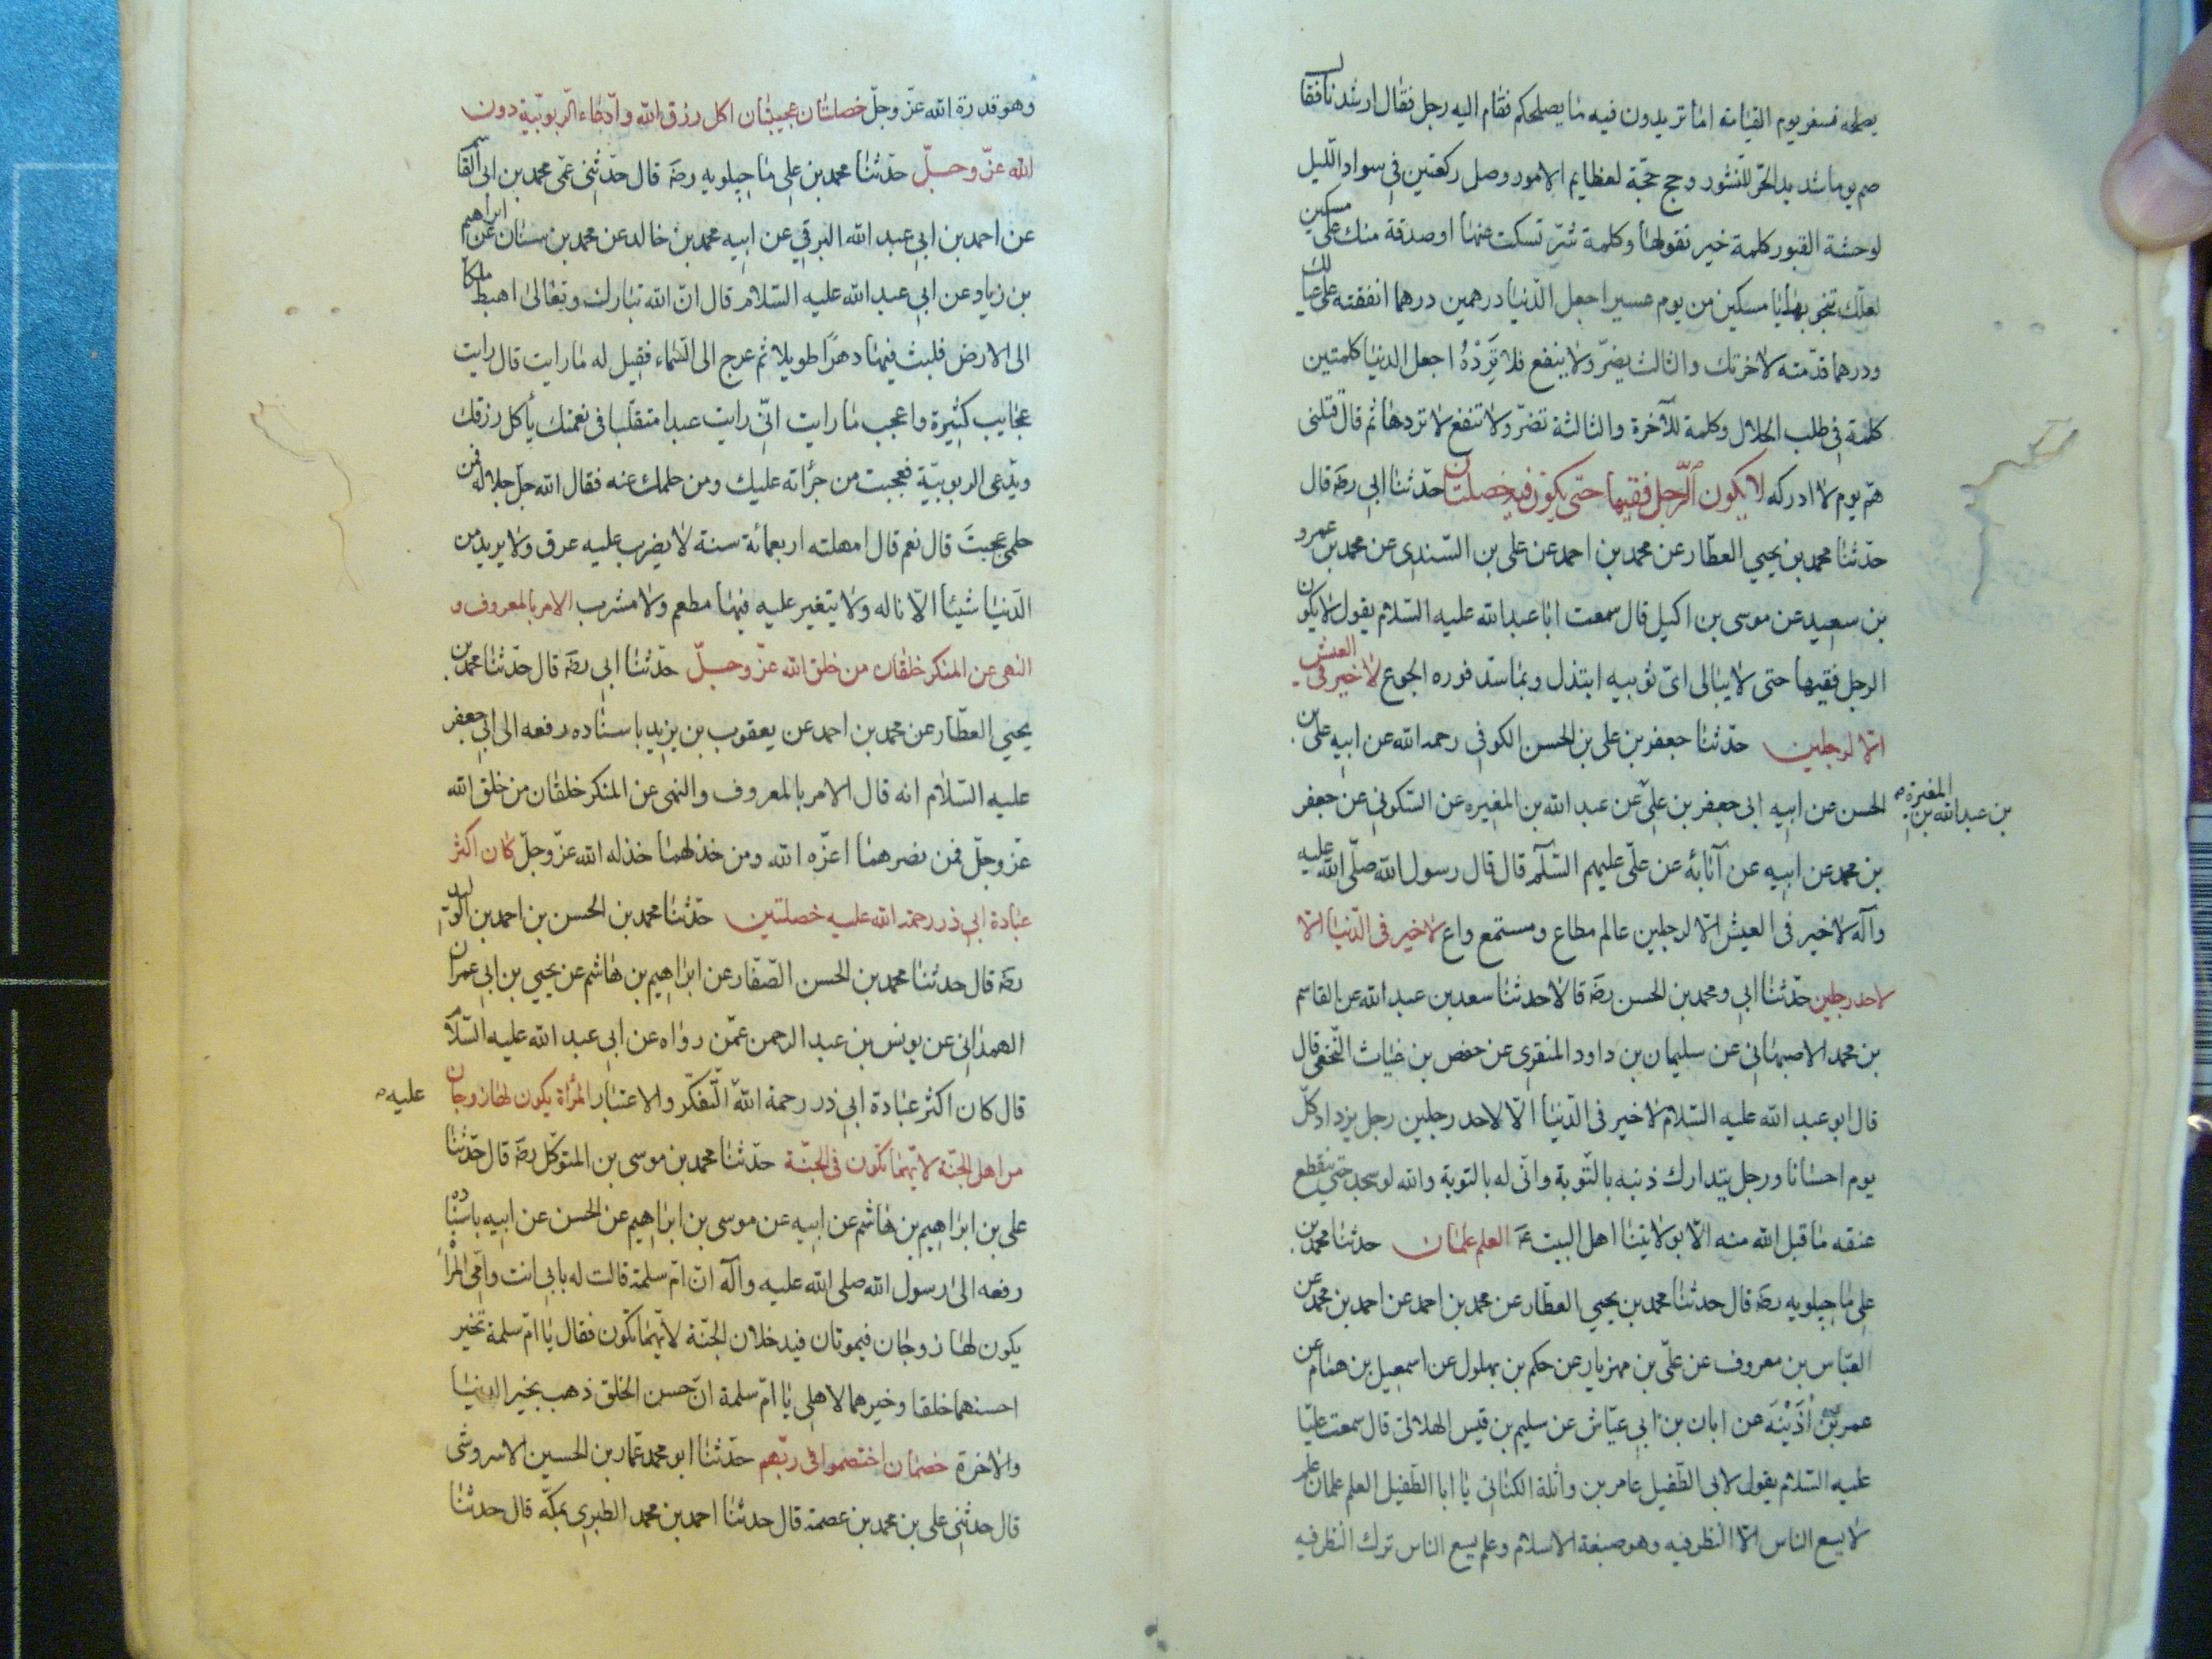 يصلحه فسفر يوم القيامة اما تريدون فيه ما يصلحكم فقام اليه رجل فقال ارشدنا فقال
صم يوما شديد الحر للنشور وحج حجة لعظايم الامور وصل ركعتين في سواد الليل
لوحشة القبور كلمة خير تقولها وكلمة شر تسكت عنها او صدقة منك على مسكين
لعلك تنجو بها يا مسكين من يوم عسير اجعل الدنيا درهمين درهما انفقته على عيالك
ودرهما قدمته لاخرتك والثالث يضر ولا ينفع فلا تَرِدْهُ اجعل الدنيا كلمتين
كلمة في طلب الحلال وكلمة للآخرة والثالثة تضر ولا تنفع لا تردها ثم قال قتلنى
هم يوم لا ادركه لا يكون الرجل فقيها حتى يكون فيه خصلتان حدثنا ابي رضه قال
حدثنا محمد بن يحيي العطار عن محمد بن احمد عن على بن السندى عن محمد بن عمرو
بن سعيد عن موسى بن اكيل قال سمعت ابا عبد الله عليه السلام يقول لا يكون
الرجل فقيها حتى لا يبالى اىّ ثوبيه ابتذل وبما سدّ فوره الجوع لا خير في العيش
الا لرجلين حدثنا جعفر بن على بن الحسن الكوفي رحمه الله عن ابيه على بن
الحسن عن ابيه ابى جعفر بن علىّ عن عبد الله بن المغيره عن السكوني عن جعفر
بن عبد الله بن المغيرة صح
بن محمد عن ابيه عن آبائه عن علىّ عليهم السلم قال قال رسول الله صلّى الله عليه
وآله لا خير فى العيش الا لرجلين عالم مطاع ومستمع واع لا خير فى الدّنيا الا
لاحد رجلين حدّثنا ابي ومحمد بن الحسن رضه قالا حدثنا سعد بن عبد الله عن القاسم
بن محمد الاصبهانى عن سليمان بن داود المنقرى عن حفص بن غياث النخعى قال
قال ابو عبد الله عليه السلام لا خير فى الدّنيا الّا لاحد رجلين رجل يزداد كلّ
يوم احسانا ورجل يتدارك ذنبه بالتّوبة وانّى له بالتوبة والله لو سجد حتى ينقطع
عنقه ما قبل الله منه الّا بولايتنا اهل البيت عَ العلم علمان حدثنا محمد بن
على ماجيلويه رضه قال حدثنا محمد بن يحيي العطّار عن محمد بن احمد عن احمد بن محمد عن
العبّاس بن معروف عن علىّ بن مهزيار عن حكم بن بهلول عن اسمعيل بن همام عن
عمر بن أُذَيْنَه عن ابان بن ابي عيّاش عن سليم بن قيس الهلالىّ قال سمعت عليّا
عليه السلام يقول لابى الطّفيل عامر بن واثلة الكنانى يا ابا الطّفيل العلم علمان علم
لا يسع الناس الّا النظر فيه وهو صبغة الاسلام وعلم يسع الناس ترك النظر فيه
وهو قدرة الله عزّ وجلّ خصلتان عجيبتان اكل رزق الله وادّعاء الربوبيّة دون
الله عزّ وجلّ حدّثنا محمد بن على ماجيلويه رضه قال حدّثنى عمّى محمد بن ابى القاسم
عن احمد بن ابي عبد الله البرقي عن ابيه محمد بن خالد عن محمد بن سنان عن ابراهيم
بن زياد عن ابي عبد الله عليه السّلام قال انّ الله تبارك وتعالى اهبط ملكا
الى الارض فلبث فيها دهرًا طويلا ثم عرج الى السّماء فقيل له ما رايت قال رايت
عجايب كثيرة واعجب ما رايت انّى رايت عبدا متقلّبا فى نعمتك يأكل رزقك
ويدّعى الربوبيّة فعجبت من جرأته عليك ومن حلمك عنه فقال الله جلّ جلاله فمن
حلمى عجبتَ قال نعم قال امهلته اربعمائة سنة لا يضرب عليه عرق ولا يريد من
الدّنيا شيئا الّا ناله ولا يتغير عليه فيها مطعم ولا مشرب الامر بالمعروف و
النهى عن المنكر خلقان من خلق الله عزّ وجلّ حدّثنا ابي رضه قال حدّثنا محمد بن
يحيي العطّار عن محمد بن احمد عن يعقوب بن يزيد باسناده رفعه الى ابي جعفر
عليه السّلام انه قال الامر بالمعروف والنهى عن المنكر خلقان من خلق الله
عزّ وجلّ فمن نصرهما اعزّه الله ومن خذلهما خذله الله عزّ وجلّ كان اكثر
عبادة ابي ذر رحمة الله عليه خصلتين حدّثنا محمد بن الحسن بن احمد بن الوليد
رضه قال حدثنا محمد بن الحسن الصّفار عن ابراهيم بن هاشم عن يحيي بن ابي عمران
الهمدانى عن يونس بن عبد الرحمن عمّن رواه عن ابى عبد الله عليه السّلام
قال كان اكثر عبادة ابي ذر رحمة الله التّفكّر والاعتبار المرأة يكون لها زوجان
عليه صح
من اهل الجنّة لايّهما تكون فى الجنّة حدّثنا محمد بن موسى بن المتوكّل رضه قال حدّثنا
على بن ابراهيم بن هاشم عن ابيه عن موسى بن ابراهيم عن الحسن عن ابيه باسناده
رفعه الى رسول الله صلى الله عليه وآله انّ امّ سلمة قالت له بابي انت وامّى المرأة
يكون لها زوجان فيموتان فيدخلان الجنّة لايّهما تكون فقال يا امّ سلمة تخير
احسنهما خلقا وخيرهما لاهله يا امّ سلمة انّ حسن الخلق ذهب بخير الدنيا
والاخرة خصمان اختصموا فى ربّهم حدّثنا ابو محمد عمّار بن الحسين الاسروشى
قال حدثنى على بن محمد بن عصمة قال حدثنا احمد بن محمد الطبرى بمكّه قال حدثنا